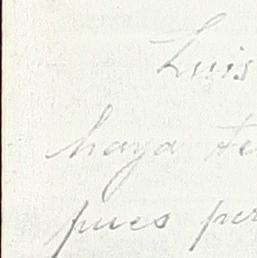 Luis
haya te
pues per